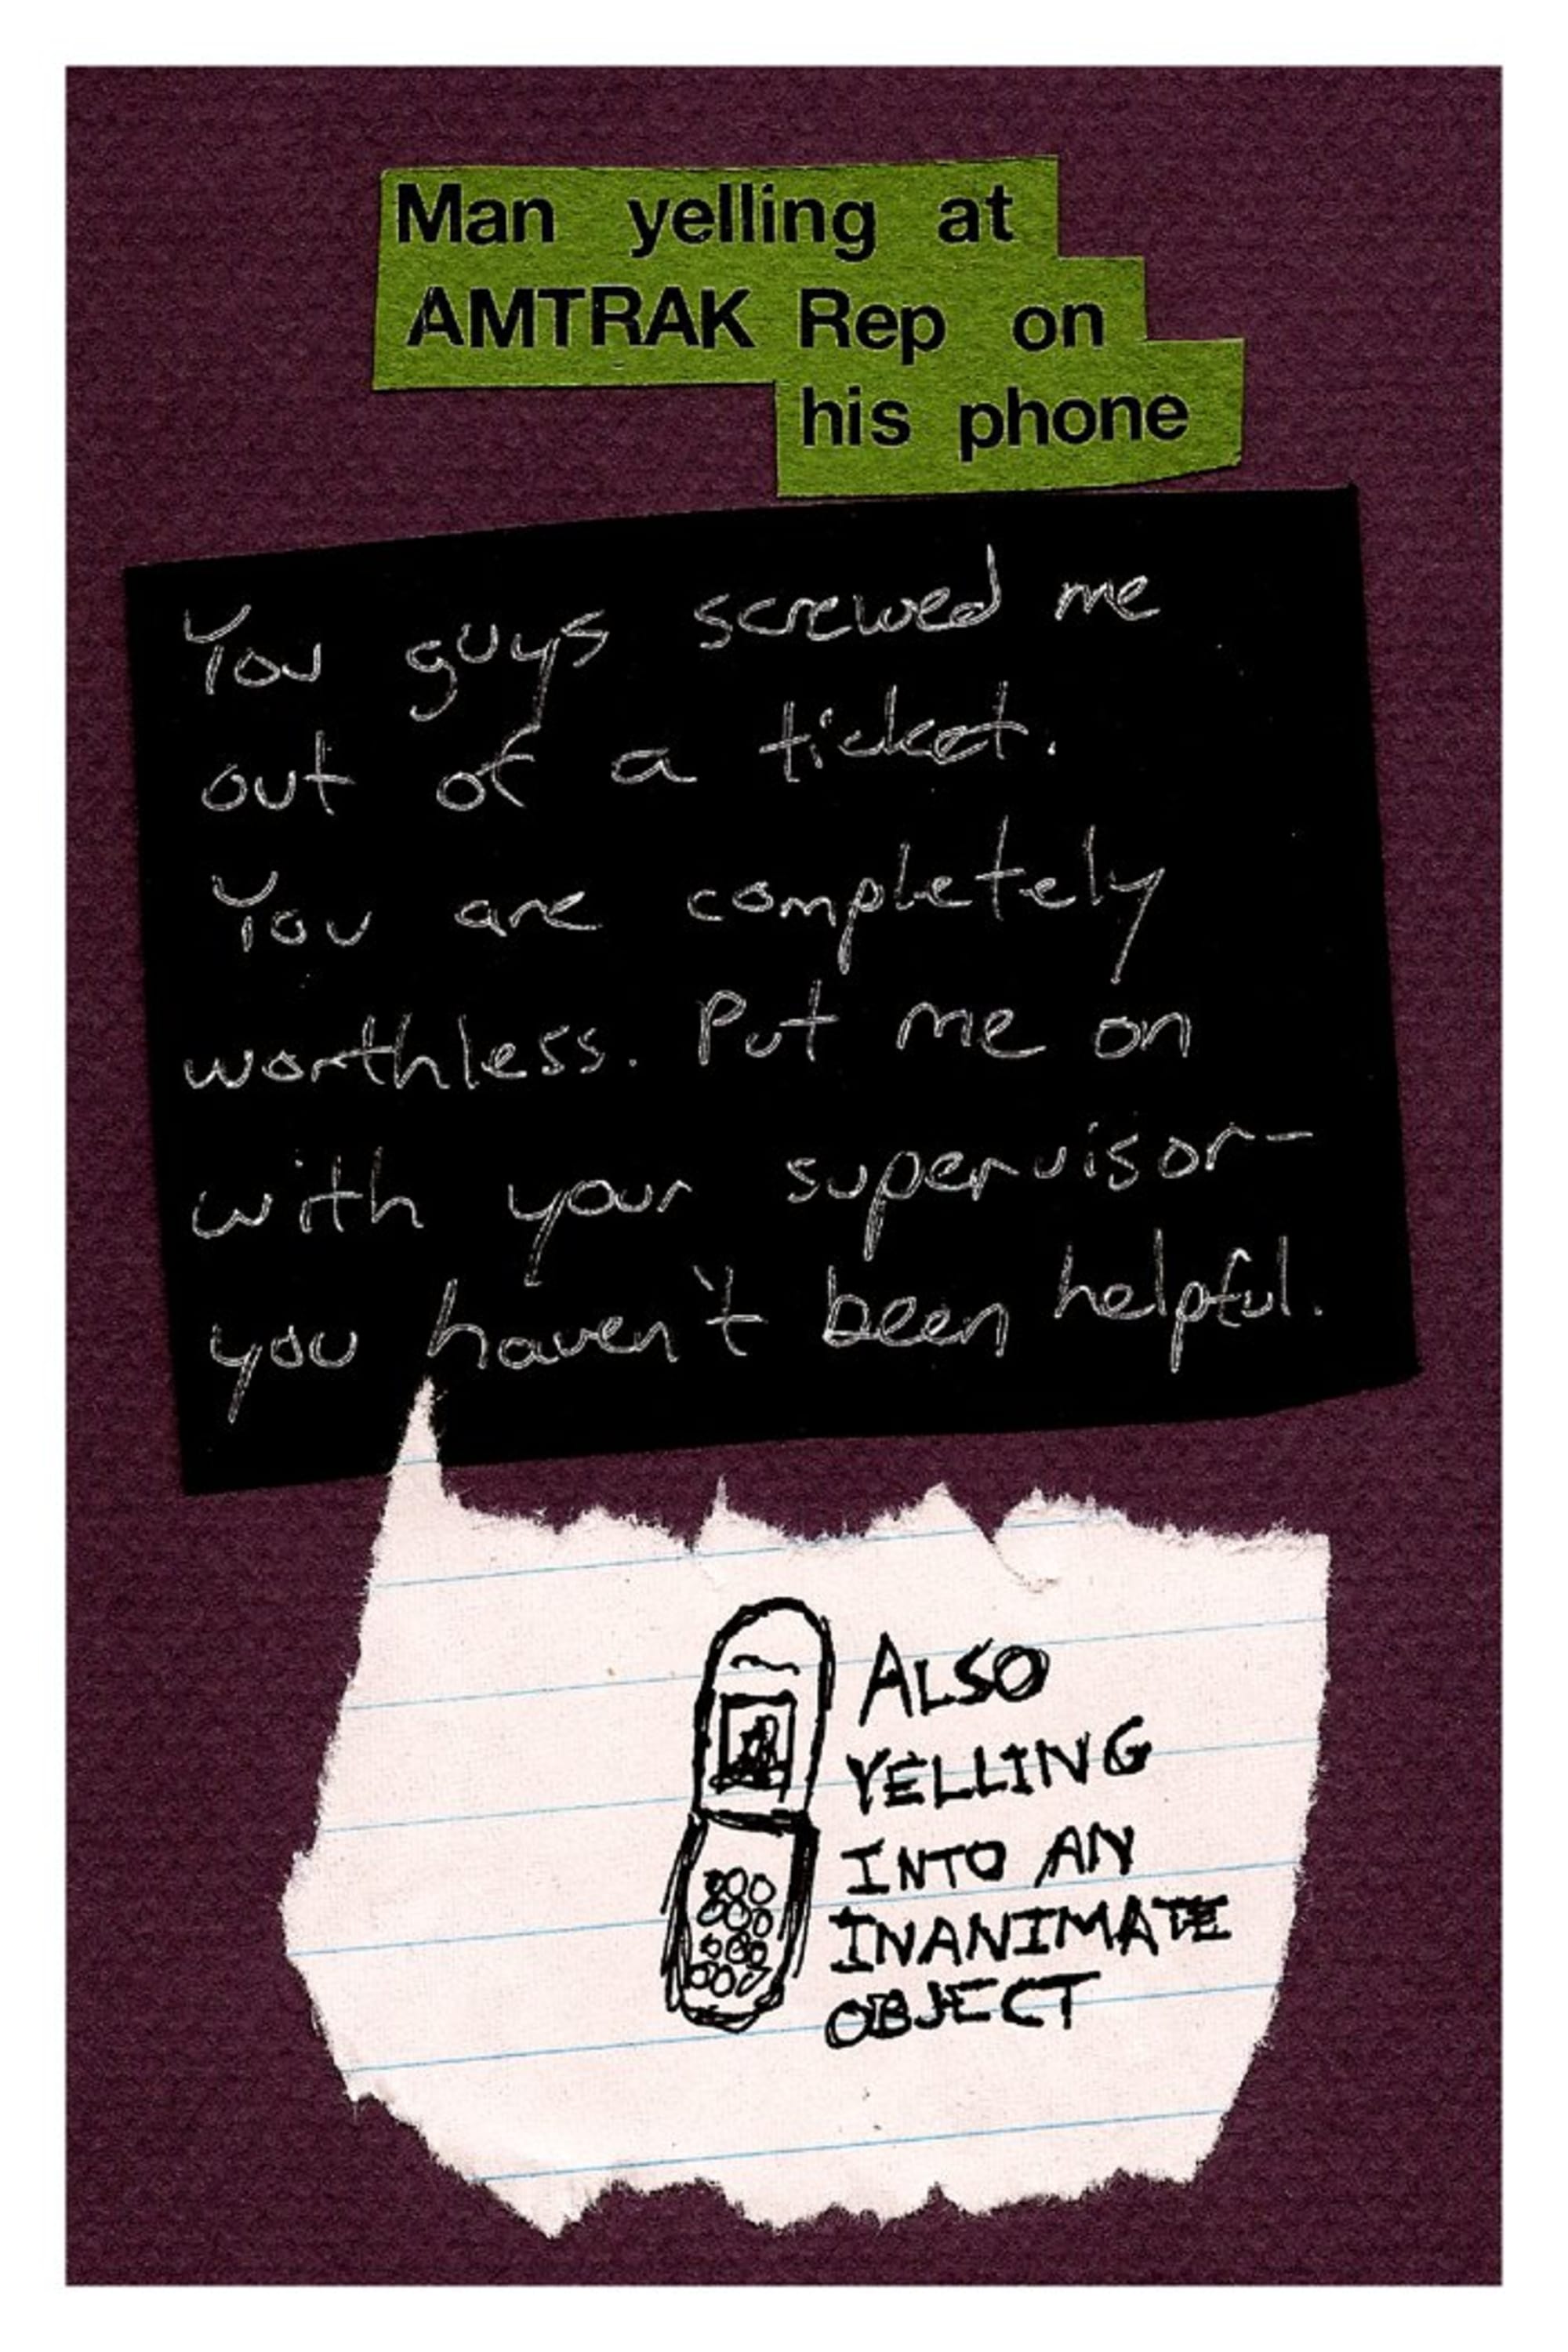 Man yelling at
AMTRAK Rep on
his phone
You guys screwed me
out of a ticket.
You are completely
worthless. Put me on
with your supervisor-
you haven't been helpful.
ALSO
YELLING
INTO AN
INANIMATE
OBJECT